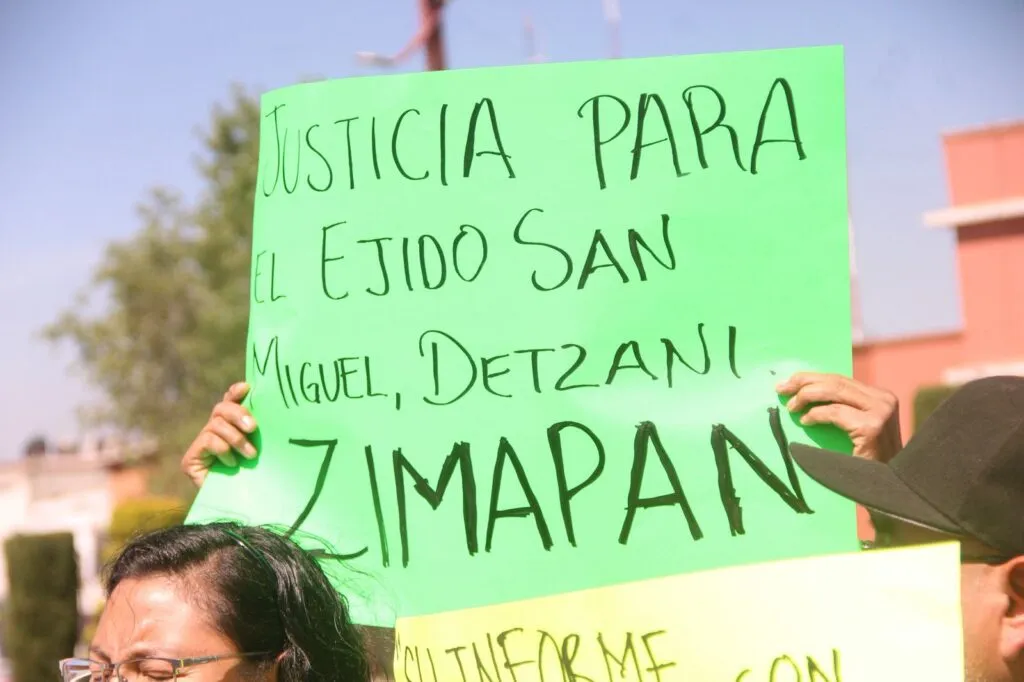 JUSTICIA PARA
EL EJIDO SAN
MIGUEL, DETZANI.
ZIMAPAN
SU INFORME CON